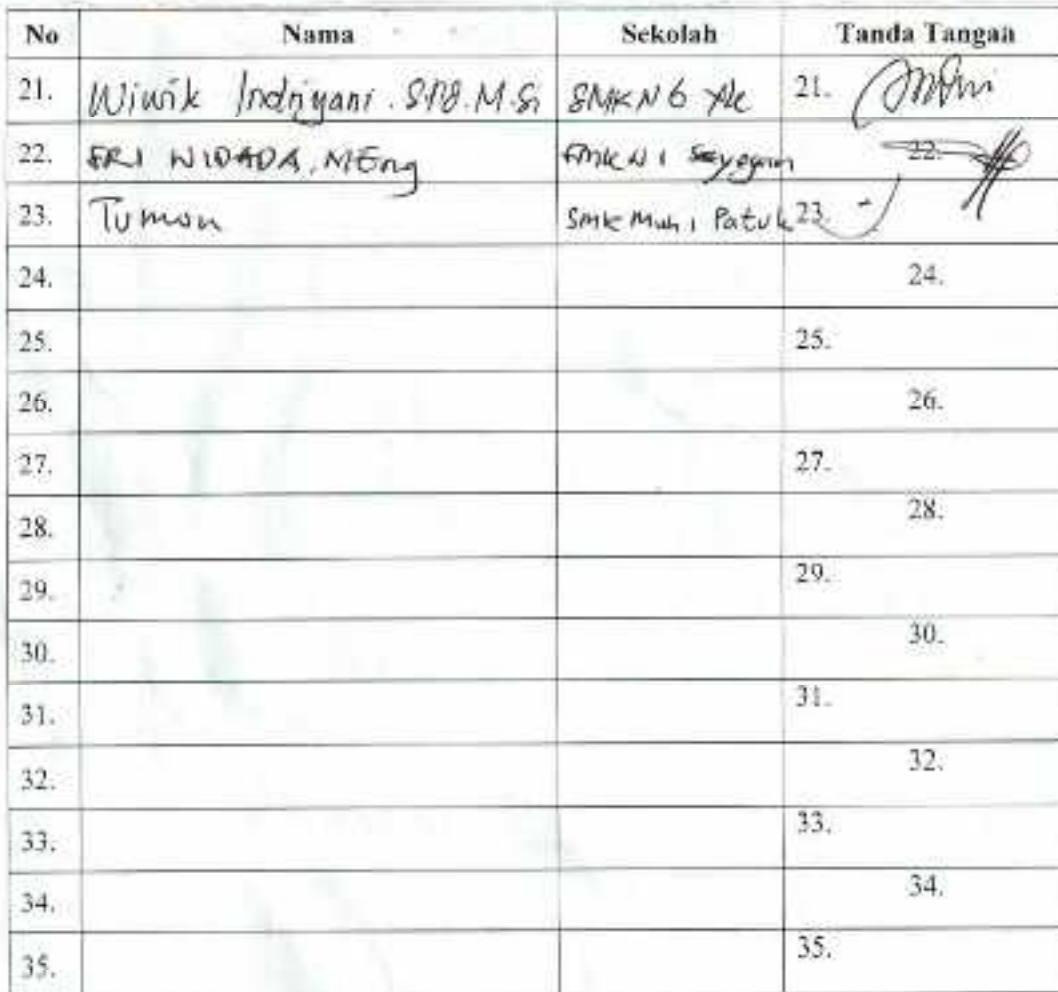 No Nama Sekolah Tanda Tangan
21. Wiwik Indriyani. SPd. M.Si SMKN 6 Yk 21.
22. ERI WIDADA, MEng SMK N 1 Seyegan 22.
23. Tumon Smk Muh 1 Patuk 23.
24. 24.
25. 25.
26. 26.
27. 27.
28. 28.
29. 29.
30. 30.
31. 31.
32. 32.
33. 33.
34. 34.
35. 35.